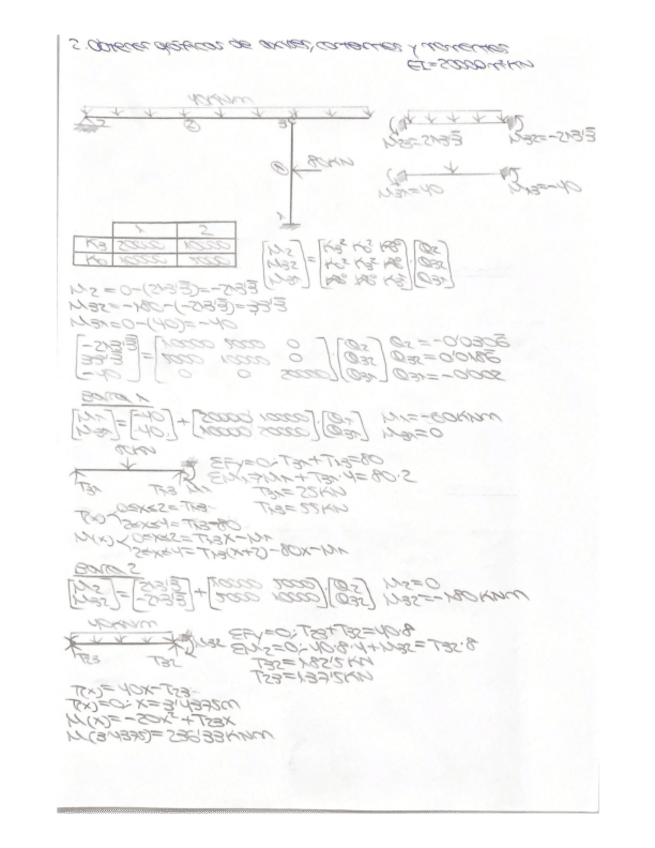 2. Obtener gráficos de axiles, cortantes y momentos
EI=20000m²KN
40KN/m
2 ② 3 ① 80KN 1
M23=213'3 M32=-213'3
M31=40 M13=-40
1 2
K3 20000 10000
K0 10000 5000
M2 = 0-(213'3)=-213'3
M32=-180-(-213'3)=33'3
M31=0-(40)=-40
[-213'3 33'3 -40] = [10000 5000 0 5000 10000 0 0 0 20000] · [θ2 θ32 θ31] θ2=-0'0306
θ32=0'0186
θ31=-0'002
Barra 1
[M1 M31] = [-40 40] + [20000 10000 10000 20000] · [θ1 θ31] M1=-60KNm
M31=0
80KN
T31 T13 M1
ΣFy=0; T31+T13=80
T31=25KN
T13=55KN
T(x) 0≤x≤2=T13
2≤x≤4=T13-80
M(x) 0≤x≤2=T13X-M1
2≤x≤4=T13(x+2)-80x-M1
Barra 2
[M2 M32] = [213'3 -213'3] + [10000 5000 5000 10000] · [θ2 θ32] M2=0
M32=-180KNm
40KN/m
T23 T32 M32
ΣFy=0; T23+T32=40·8
ΣM2=0; 40·8·4+M32=T32·8
T32=182'5KN
T23=137'5KN
T(x)=40x-T23
T(x)=0; x=3'4375m
M(x)=-20x²+T23x
M(3'4375)=236'33KNm